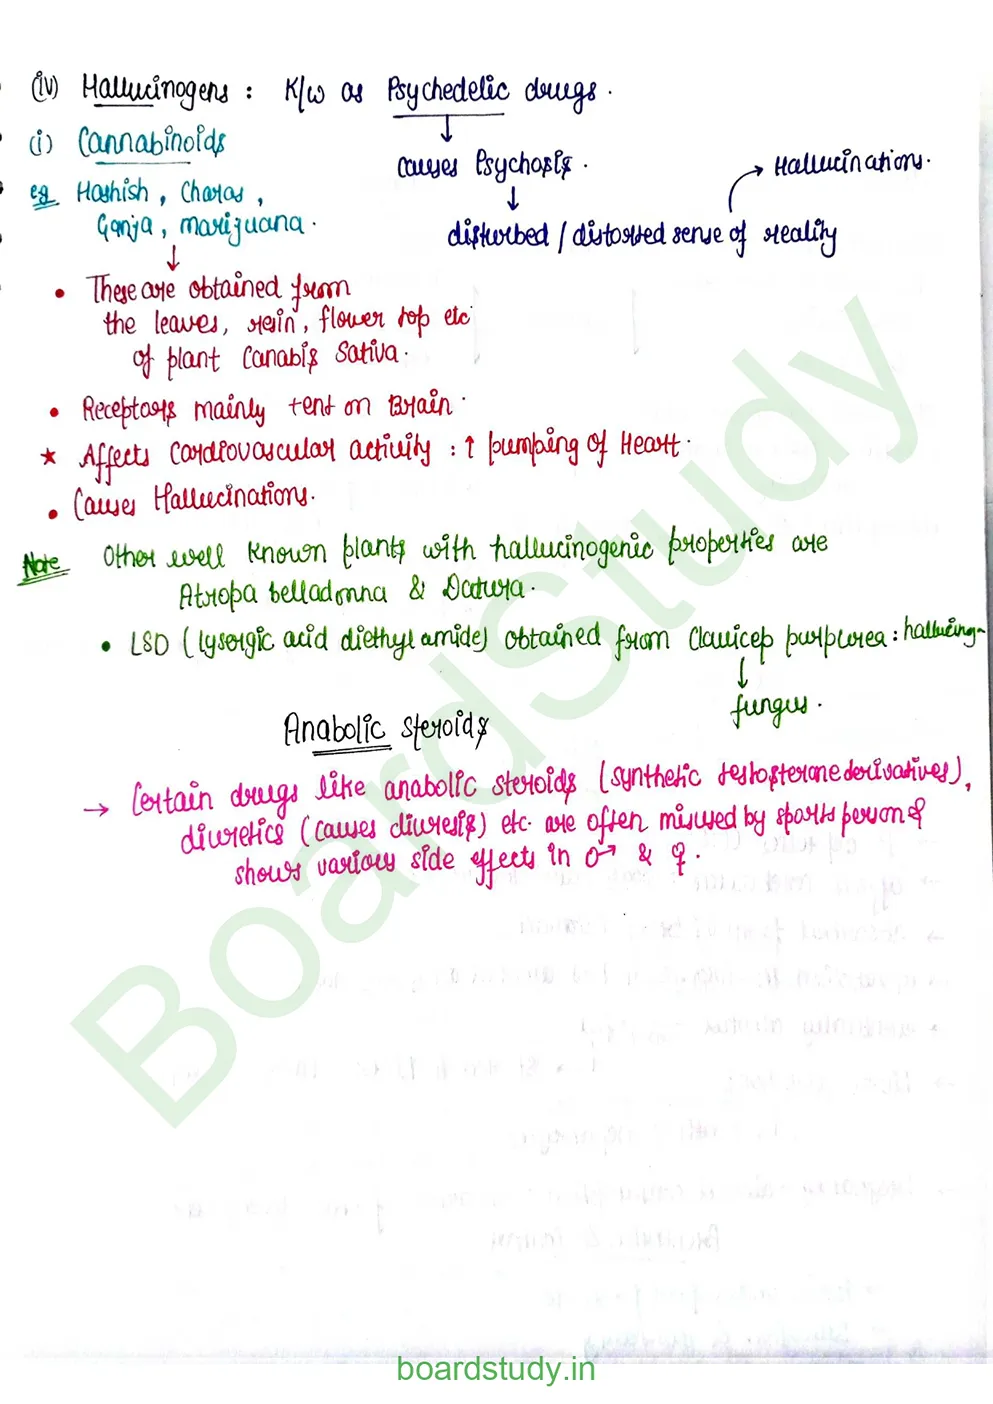 (iv) Hallucinogens : K/w as Psychedelic drugs.
(i) Cannabinoids
causes Psychosis.
→ Hallucinations.
eg Hashish, Charas,
Ganja, marijuana.
disturbed / distorted sense of reality
• These are obtained from
the leaves, resin, flower top etc
of plant Canabis Sativa.
• Receptors mainly tent on Brain.
★ Affects Cardiovascular activity : ↑ pumping of Heart.
• Causes Hallucinations.
Note Other well known plants with hallucinogenic properties are
Atropa belladonna & Datura.
• LSD (lysergic acid diethyl amide) obtained from Clavicep purpurea : hallucing-
fungus.
Anabolic Steroids
→ Certain drugs like anabolic steroids (synthetic testosterone derivatives),
diuretics (causes diuresis) etc. are often misused by sports person &
shows various side effects in ♂ & ♀.
BoardStudy
boardstudy.in